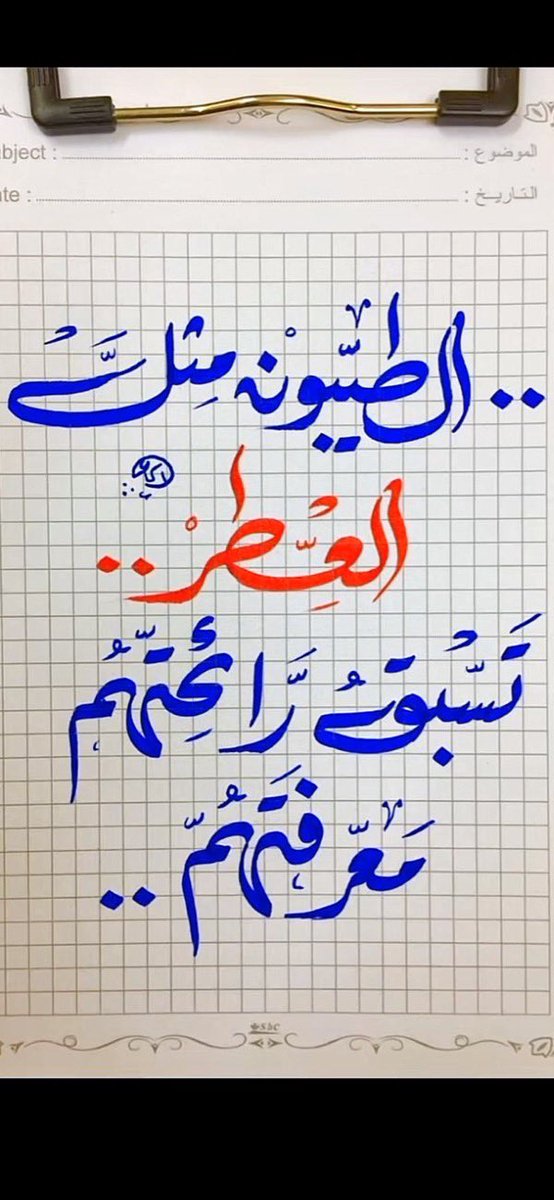 Subject :
الموضوع :
Date :
التاريخ :
.. الطيّبونْ مِثلَ
العِطرْ ..
تَسْبقُ رَائحَتِهُم
مَعرفَتَهُم ..
SBC